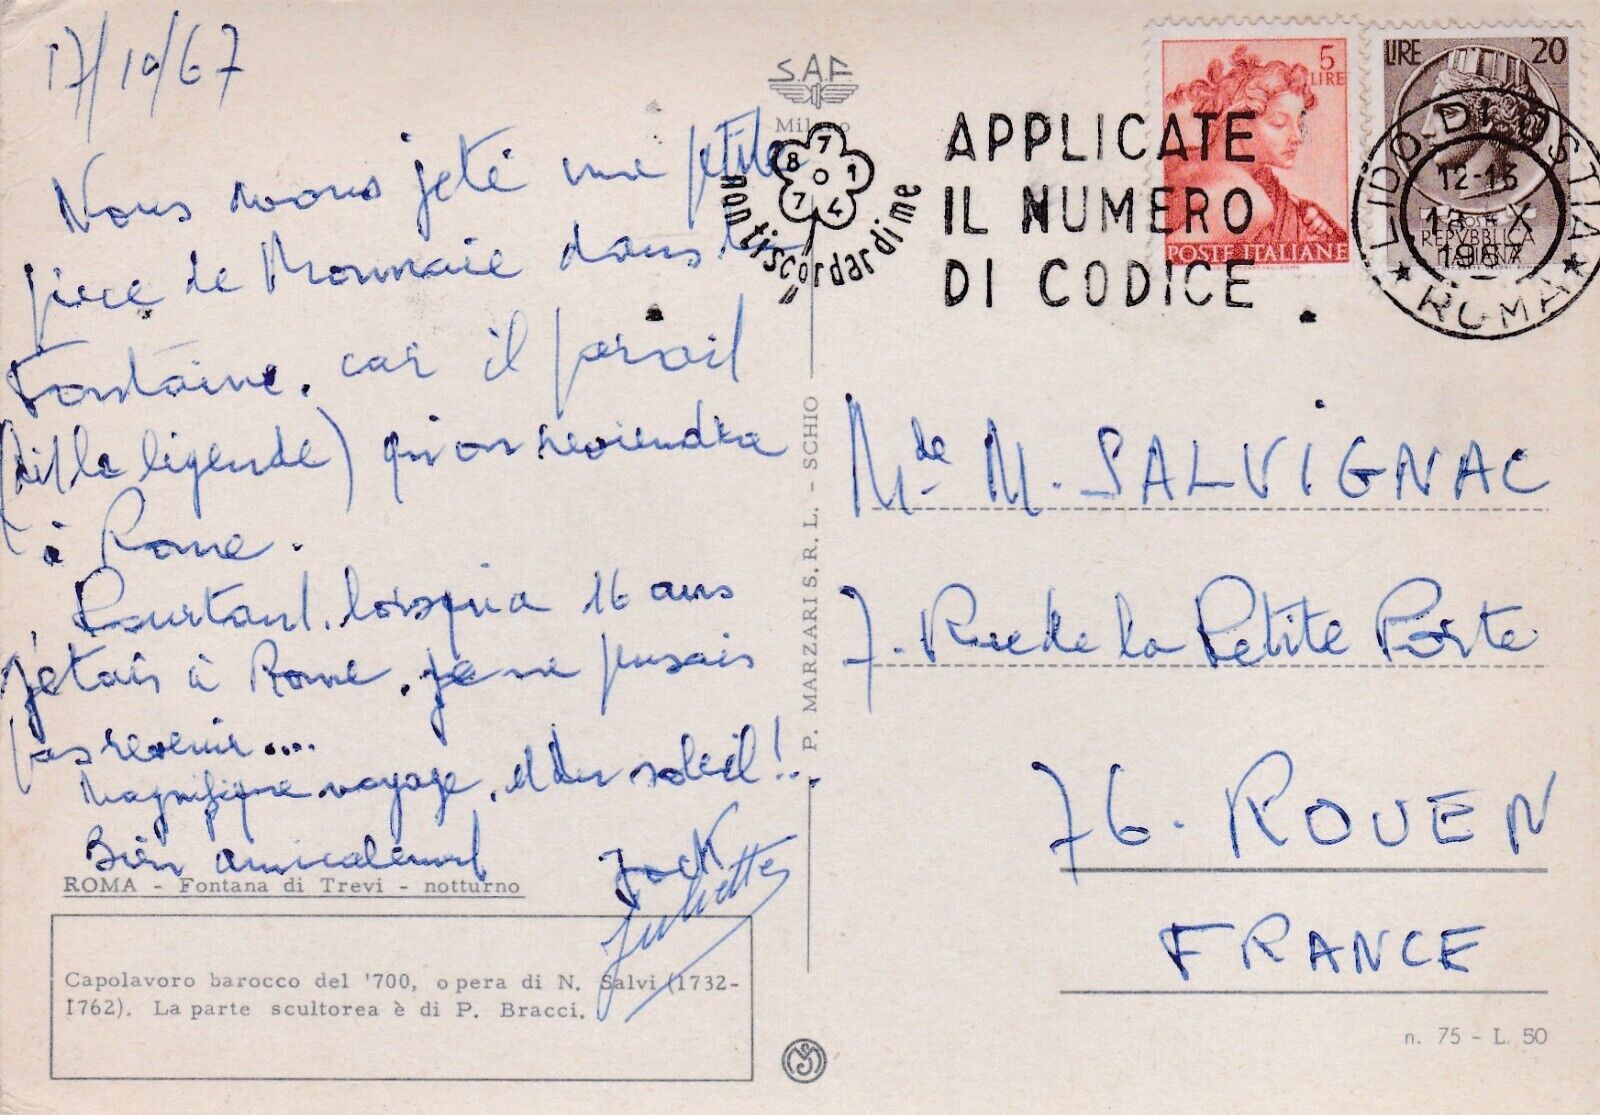 17/10/67
Nous avons jeté une petite
piece de Monnaie dans la
Fontaine. car il parait
(dit la légende) qu'on reviendra
à Rome.
Pourtant. lorsqu'à 16 ans
j'étais à Rome. je ne pensais
pas revenir....
Magnifique voyage. et du soleil!..
Bien amicalement
Jack
Juliette
ROMA - Fontana di Trevi - notturno
Capolavoro barocco del '700, opera di N. Salvi (1732-
1762). La parte scultorea è di P. Bracci.
S.A.F.
Milano
P. MARZARI S. R. L. - SCHIO
8 7 1 4 7
non ti scordar di me
APPLICATE
IL NUMERO
DI CODICE
5
LIRE
POSTE ITALIANE
LIRE 20
POSTE
REPVBBLICA
ITALIANA
LIDO DI OSTIA
X
1967
★ ROMA ★
Mde M. SALVIGNAC
7. Rue de la Petite Porte
76. ROUEN
FRANCE
n. 75 - L. 50